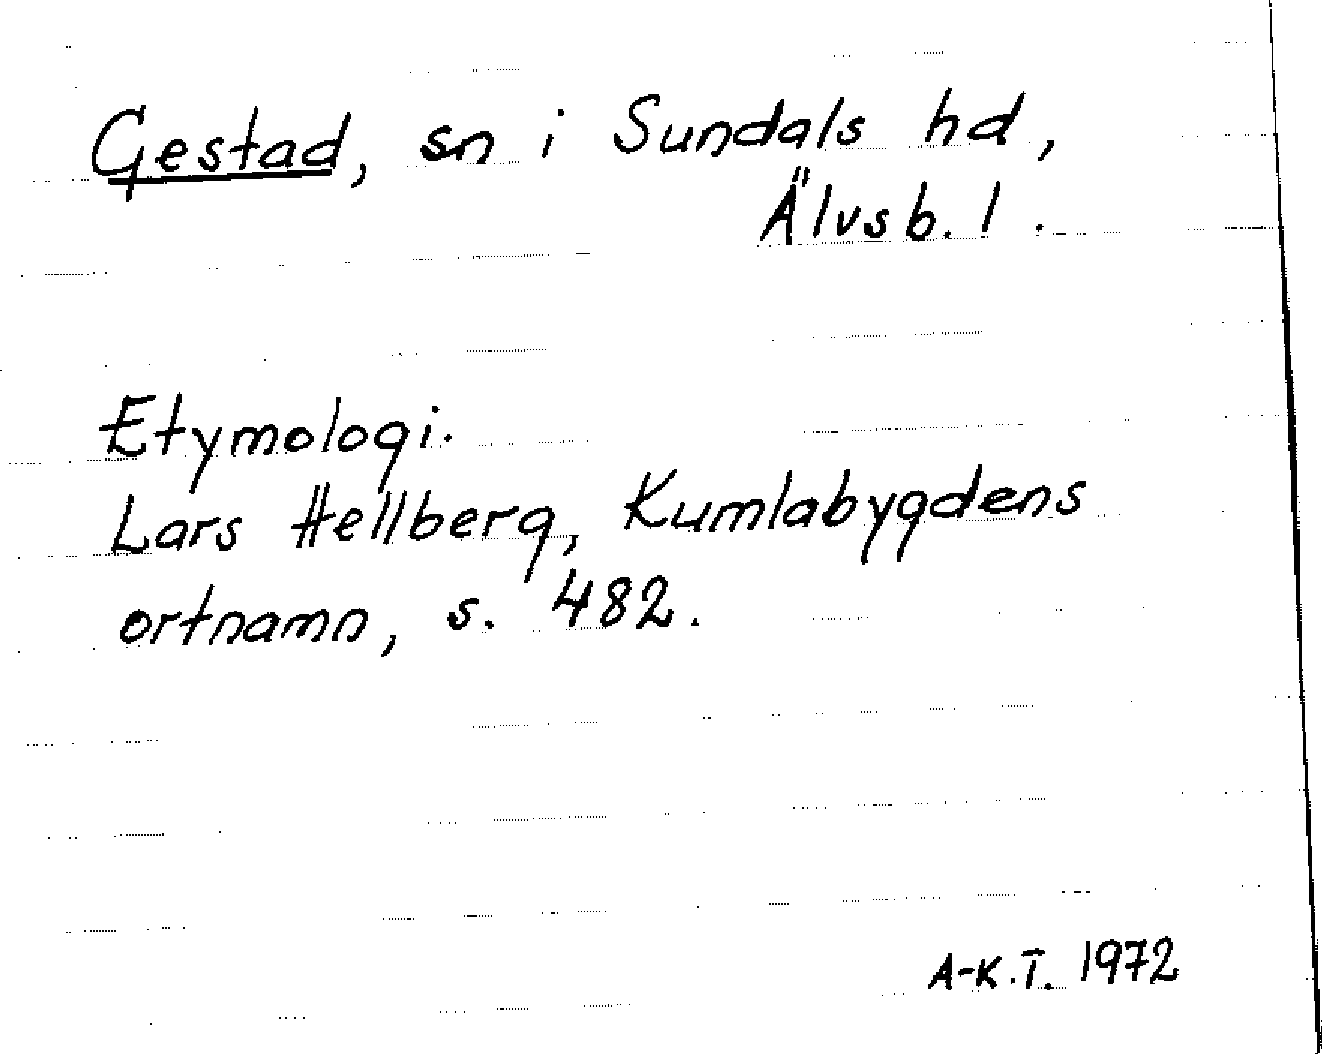 Gestad, sn i Sundals hd,
Älvsb. l.
Etymologi.
Lars Hellberg, Kumlabygdens
ortnamn, s. 482.
A-K.T. 1972